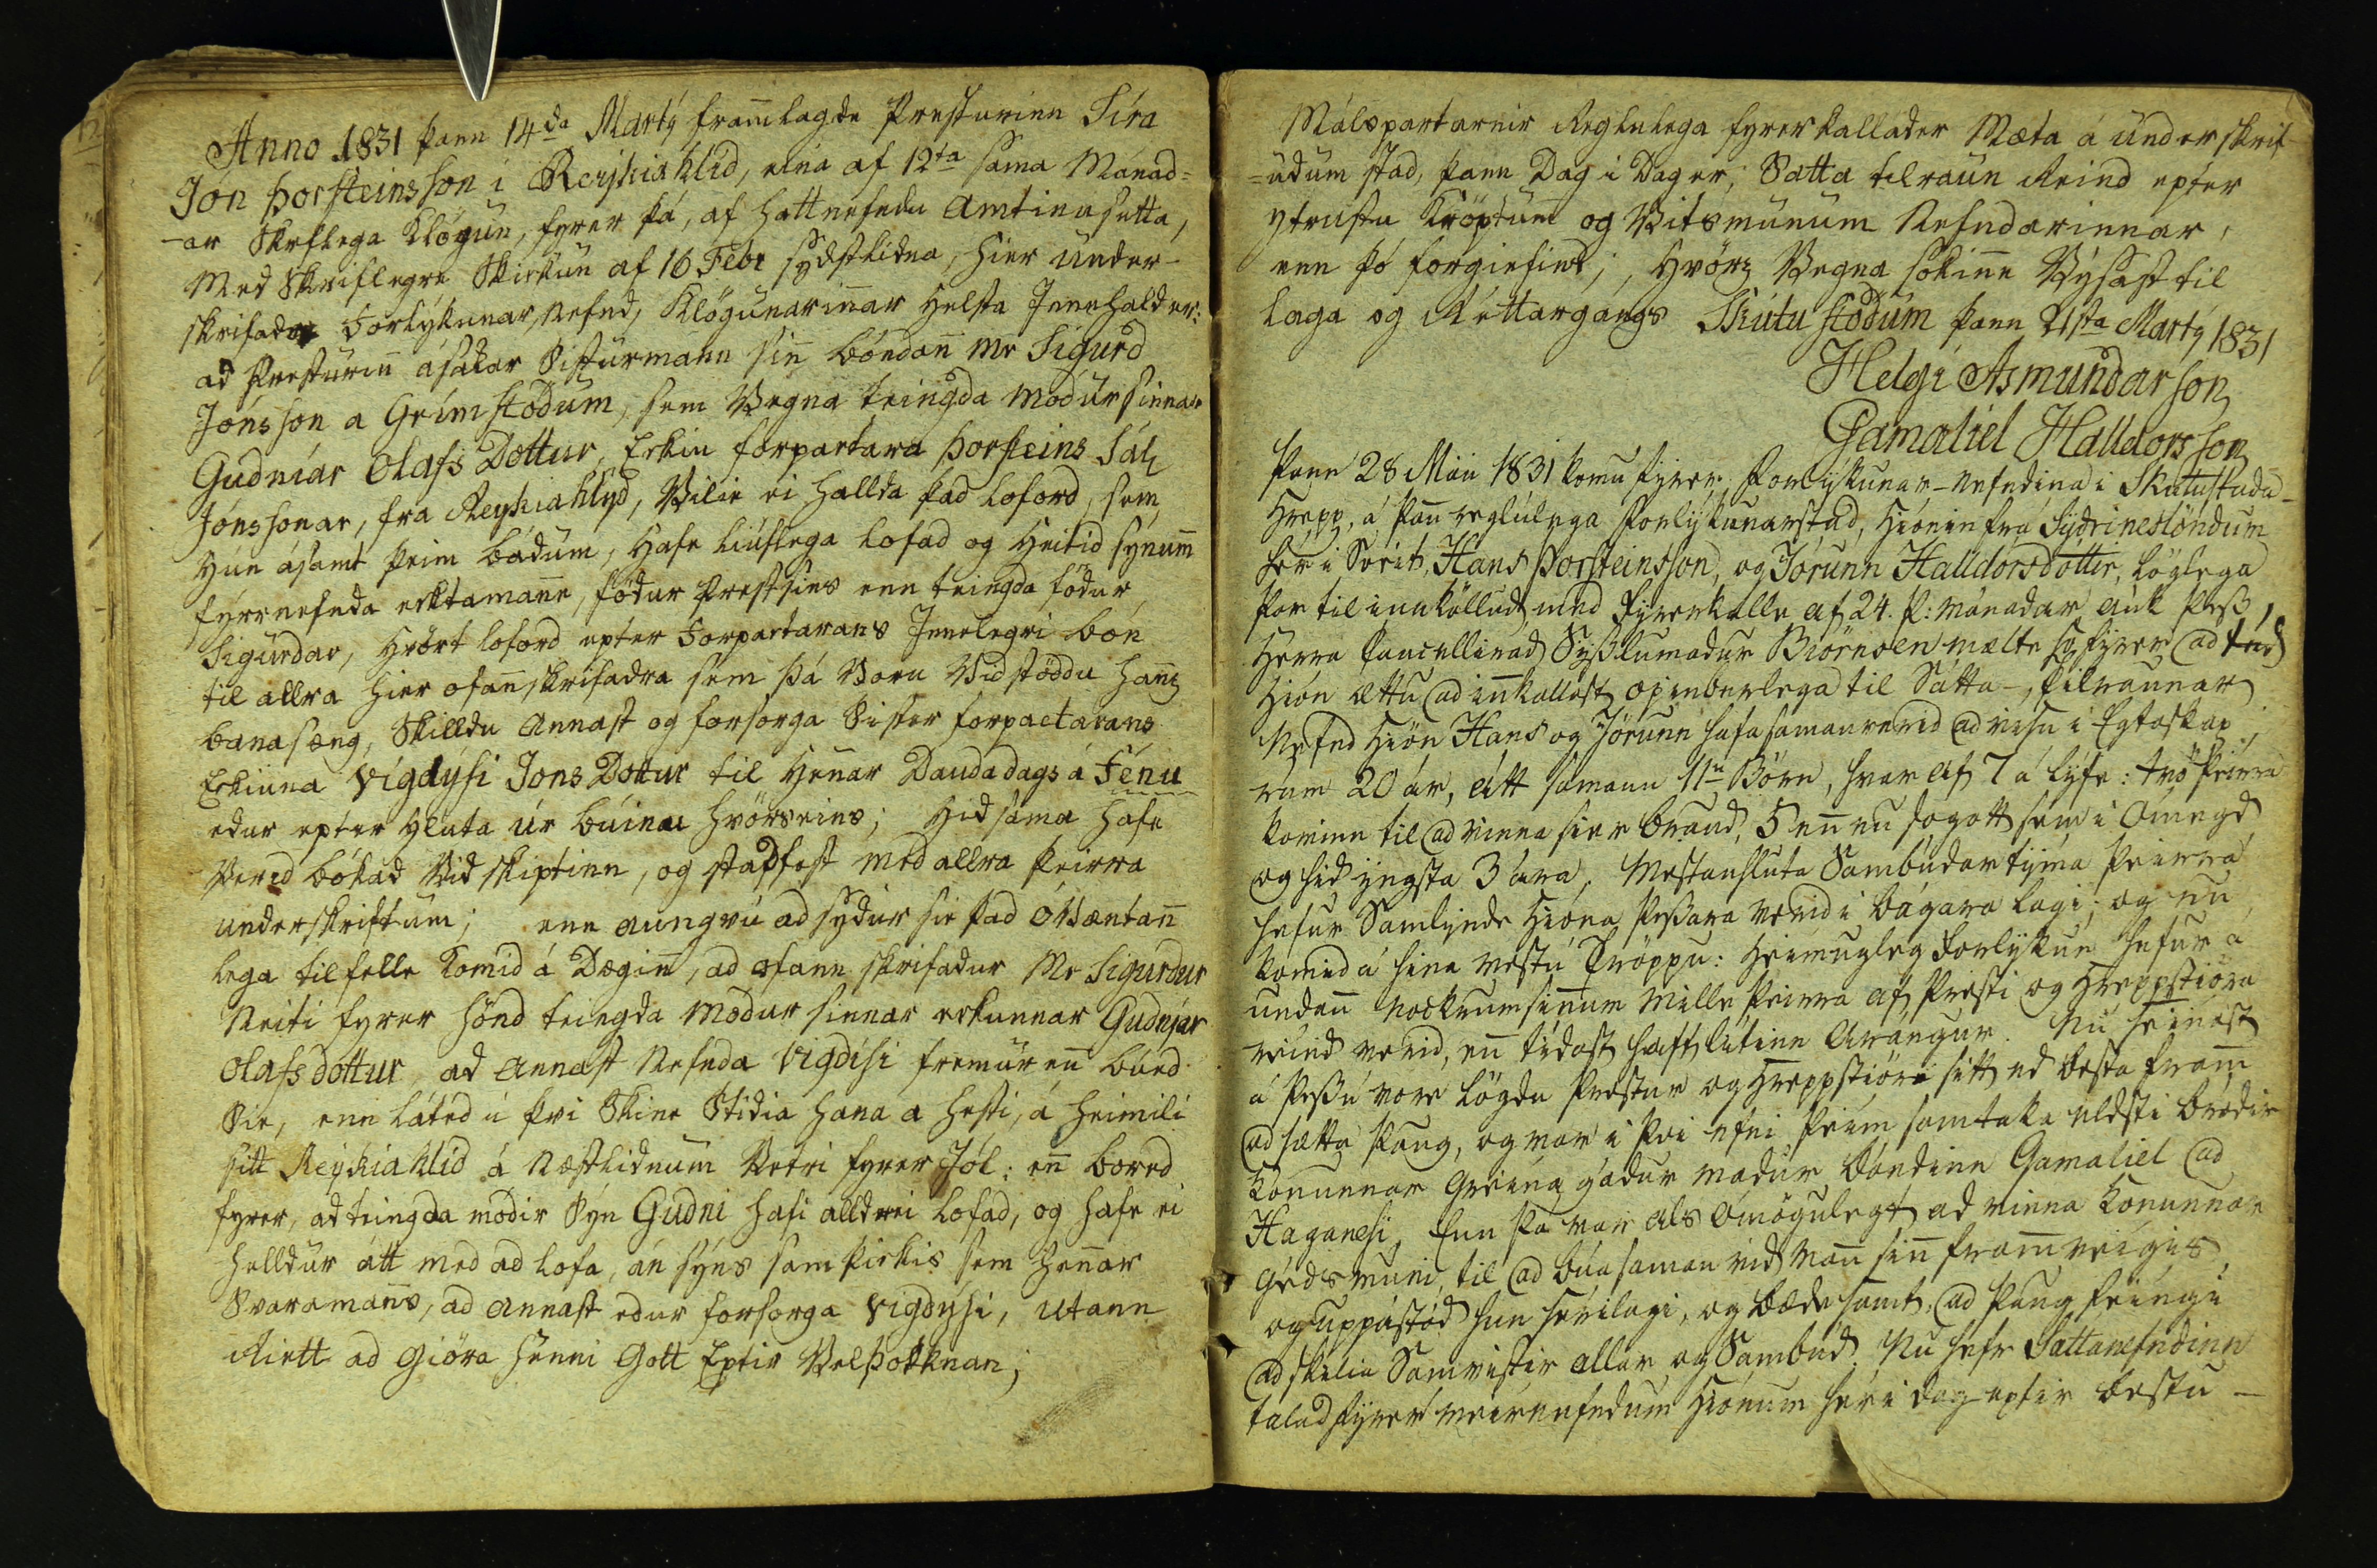 Anno 1831 þann 14da Martý framlagde Presturinn Síra
Jón Þorsteinsson i Reýkiahlid, eina af 12ta sama Mánad=
-ar Skriflega Klögun, fyrer þá, af hattnefndu Amtinu setta,
Med Skriflegre Skickun af 16 Febr sýdstlidna, hier under-
skrifada Forlýkunar Nefnd, Klögunarinnar Helsta Innehald er:
ad Presturinn ásakar Sisturmann sinn bóndann Mr Sigurd
Jónsson a Grímstödum, sem Vegna teingda módur sinnar
Gudníar Olafs Dottur, Eckiu forpartara Þorsteins Sál
Jónssonar, fra Reykiahlýd, Vilie ei hallda þad loford, sem
hún ásamt þeim bádum, Hafe liúflega lofad og heitid sýnum
fýrrnefnda ecktamanne, födur Prestsins enn teingda födur
Sigurdar, hvört loford epter Forpartarans Innelegri bón
til allra hier ofannskrifadra sem þá Voru Vidstöddu hanns
banasæng, Skilldu Annast og forsorga Sister forpactarans
Eckiuna Vigdýsi Jons Dottur til Hennar Dauda dags á Fénu
edur epter hluta úr búinu hvörs eins; hid sama hafe
Vered bókad Vid skiptinn, og stadfest med allra þeirra
underskriftum; enn aungvu ad sýdur sie þad óvæntann
lega tilfelle komid á Dæginn, ad ofann skrifadur Mr Sigurdur
Neiti fyrer hönd teingda módur sinnar eckunnar Gudnýar
Olafsdottur, ad annast Nefnda Vigdísi fremur enn búed
Sie, enn látid i þvi Skine Stidia hana a hesti, á heimili
sitt Reýkiahlid á Næstlidnum Vetri fyrer Jól: enn bored
fyrer, ad teingda módir Sýn Gudni hafi alldrei lofad, og hafe ei
helldur átt med ad lofa, án sýns samþickis sem hennar
Svaramanns, ad annast edur forsorga Vigdýsi, utann
Riett ad giöra henni Gott Eptir Velþokknan;
Málspartarnir Reglulega fyrerkallader Mæta a underskrif
=udum stad, þann Dag i Dag er; Satta tilraun Reind epter
ýtrustu Kröptum og Vitsmunum Nefndarinnar,
enn þó forgiefins; Hvörs Vegna sökinn Výsast til
laga og Réttargángs Skútustödum þann 21sta Martý 1831
Helgi Asmundarson
Gamaliel Halldorsson
Þann 28 Mäii 1831 komu fyrer Forlýkunar-nefndina i Skútustada-
Hrepp, á þann reglulega Forlýkunarstad, Hiónin frá Sýdrineslöndum
her i Sveit, Hans Þorsteinsson, og Jórunn Halldórsdottir, löglega
þar til innkölluð, med fyrerkalle af 24. þ: mánadar auk þess,
Herra Cancelliráð Sýsslumadur Biörnsen mælte sig fyrer ad
Hión ættu ad innkallast opinberlega til Sátta-, tilraunar
Nefnd Hión Hans og Jórunn hafa saman verid ad visu i Egtaskap
rúm 20 ár, átt saman 11u Börn, hvar af 7 á lýfe: tvö þeirra
kominn til ad vinna sier braud, 5 enn nu sogott sem i ómegd
og hid ýngsta 3 ára, Mestannhluta Sambúdartýma þeirra
hefur Samlýnde Hióna þessara verid i bágara lagi, og nu
komid á hina vestu Tröppu: Heimugleg Forlýkun hefur á
undann nockrumsinnum mille þeirra af Presti og Hreppstióra
reind verid, enn tídast haft lítinn Arángur. Nu seinast
á þessu vore lögdu Prestur og Hreppstióri sitt ed besta fram
ad sætta þaug, og var i þvi efni þeim samtaka eldsti bródir
konunnar Greina gódur madur bóndinn Gamaliel ad
Haganesi, Enn þa var als ómögulegt ad vinna konunnar
géds muni, til ad búa saman vid mann sinn framveigis,
og uppástód hun séilagi, og bæde samt, ad þaug feingi
ad skilia Samvistir allar og Sambúd. Nu hefr Sattanefndinn
talad fyrer meirnefndum Hiónum hér i dag eptir bestu -